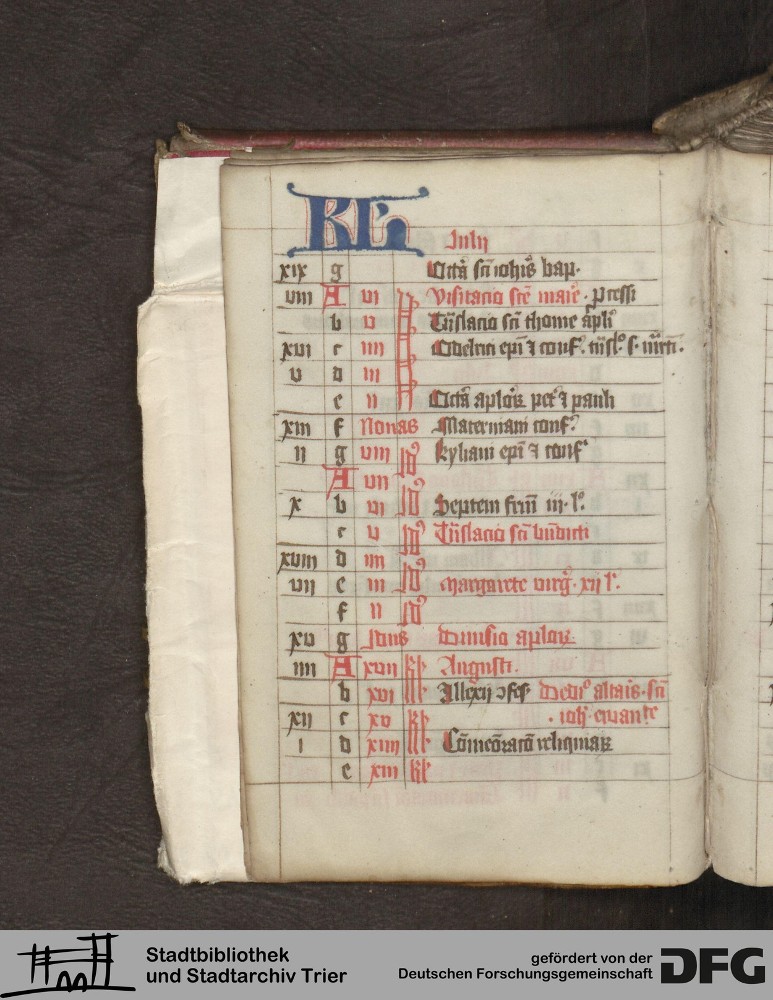 KL
July
xix g Octā sci iohis bap.
viii A vi Visitatio scē marie. pcessi
b v Trāslatio sci thome apli
xvi c iiii Odelrici epi ⁊ conf. trāsl. s. mrti.
v d iii
e ii Octā aplor petri ⁊ pauli
xiii f Nonas Materniani conf.
ii g viii Id Kyliani epi ⁊ conf
A vii
x b vi Id Septem frm iii. l.
c v Id Trāslatio sci bndicti
xviii d iiii
vii e iii Id Margarete virg. xii l.
f ii Id
xv g Idus Diuisio aplor
iiii A xvii kl Augusti
b xvi Allexii ɔfes Dedic altaris sci
xii c xv kl . ioh ewange
i d xiiii Cōmeōratō reliquiar
e xiii kl
Stadtbibliothek
und Stadtarchiv Trier
gefördert von der
Deutschen Forschungsgemeinschaft
DFG